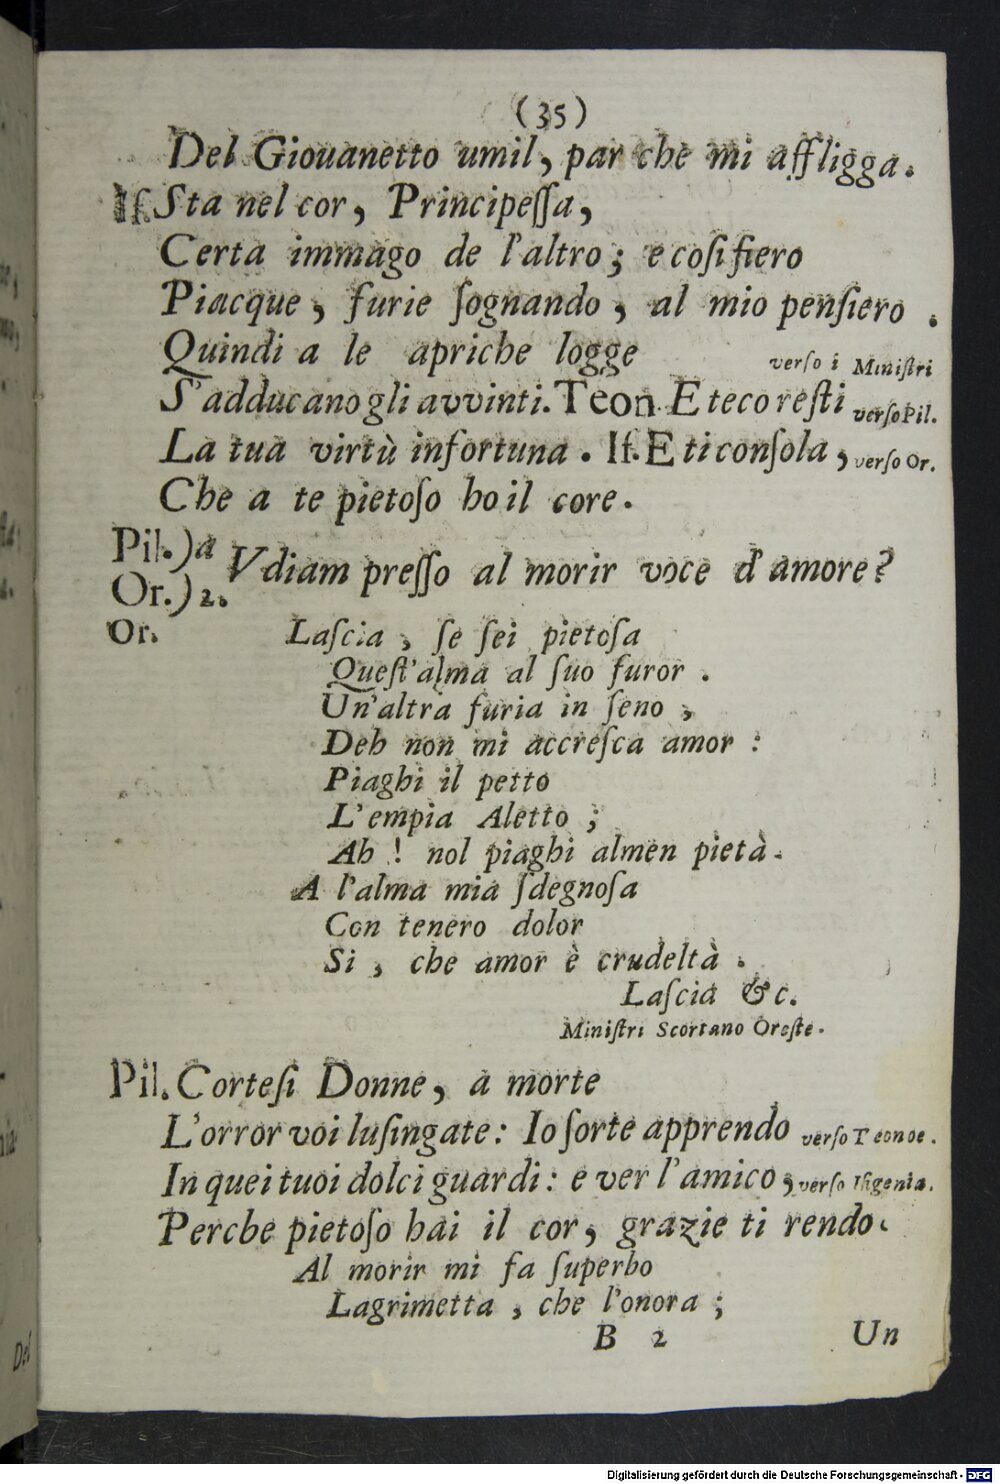 (35)
Del Giouanetto umil, par che mi affligga.
If. Sta nel cor, Principeſſa,
Certa immago de l'altro; e coſi fiero
Piacque, furie ſognando, al mio penſiero.
Quindi a le apriche logge verſo i Miniſtri
S'adducano gli avvinti. Teon. E teco reſti verſo Pil.
La tua virtù in fortuna. If. E ti conſola, verſo Or.
Che a te pietoſo ho il core.
Pil.) a
Or.) 2. Vdiam preſſo al morir voce d'amore?
Or. Laſcia, ſe ſei pietoſa
Queſt'alma al ſuo furor.
Un'altra furia in ſeno,
Deh non mi accreſca amor:
Piaghi il petto
L'empia Aletto;
Ah! nol piaghi almen pietà.
A l'alma mia ſdegnoſa
Con tenero dolor
Si, che amor è crudeltà.
Laſcia &c.
Miniſtri Scortano Oreſte.
Pil. Corteſi Donne, a morte
L'orror voi luſingate: Io ſorte apprendo verſo Teonoe.
In quei tuoi dolci guardi: e ver l'amico, verſo Ifigenia.
Perche pietoſo hai il cor, grazie ti rendo.
Al morir mi fa ſuperbo
Lagrimetta, che l'onora;
B 2 Un
Del
Digitalisierung gefördert durch die Deutsche Forschungsgemeinschaft - DFG